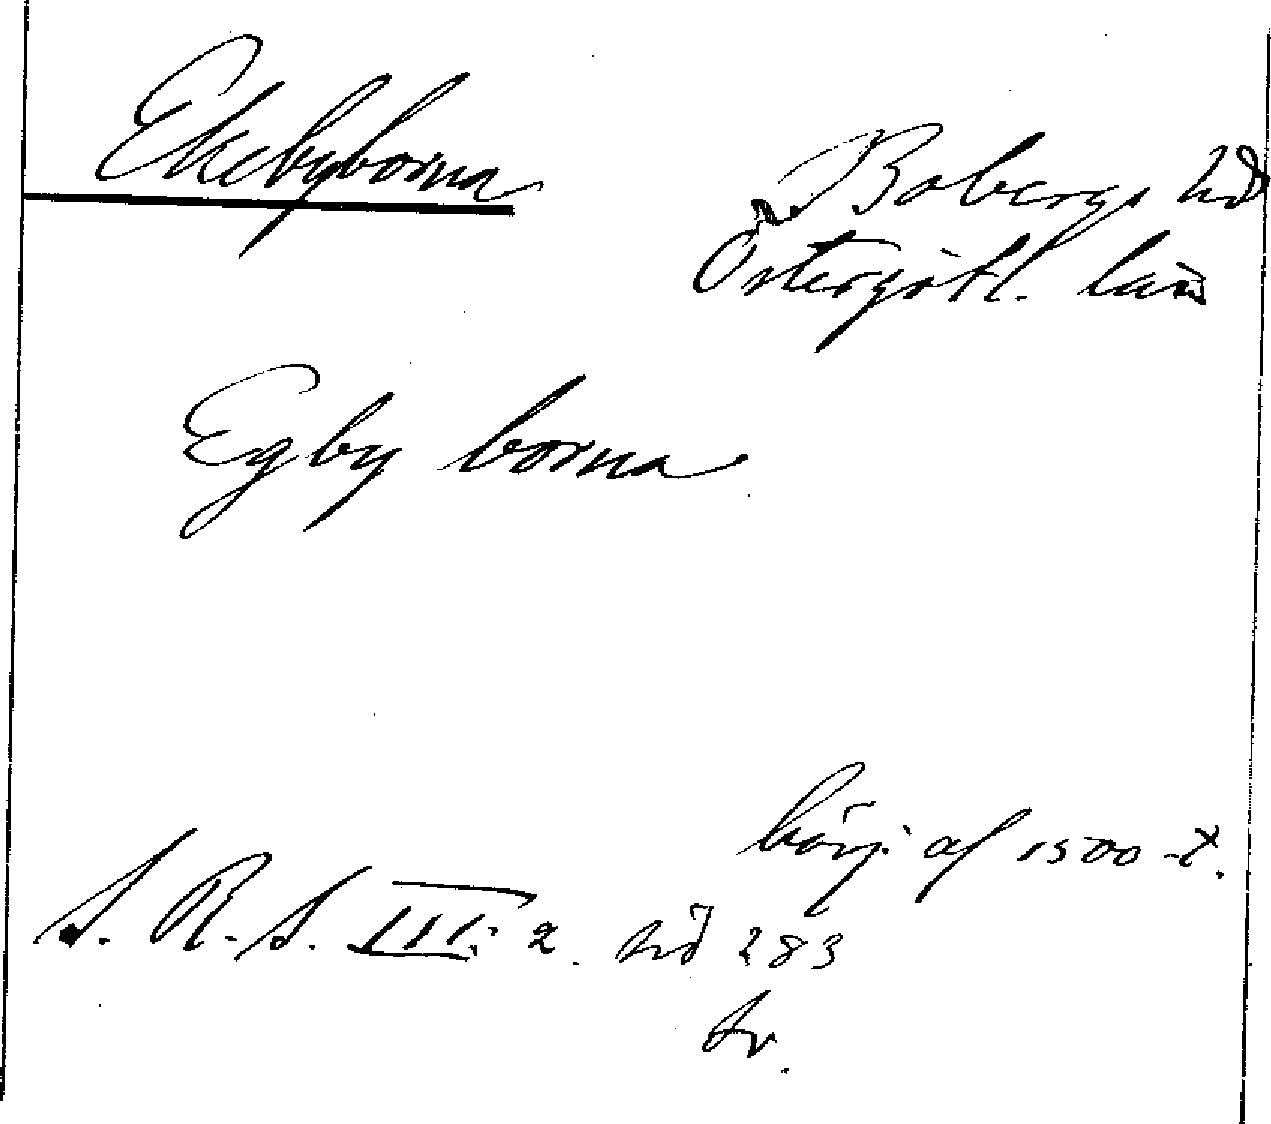 Ekebyborna
Bobergs hd
Östergötl. län
Egby borna
börj. af 1500-t.
S. R. S. III: 2. sid 283
tr.